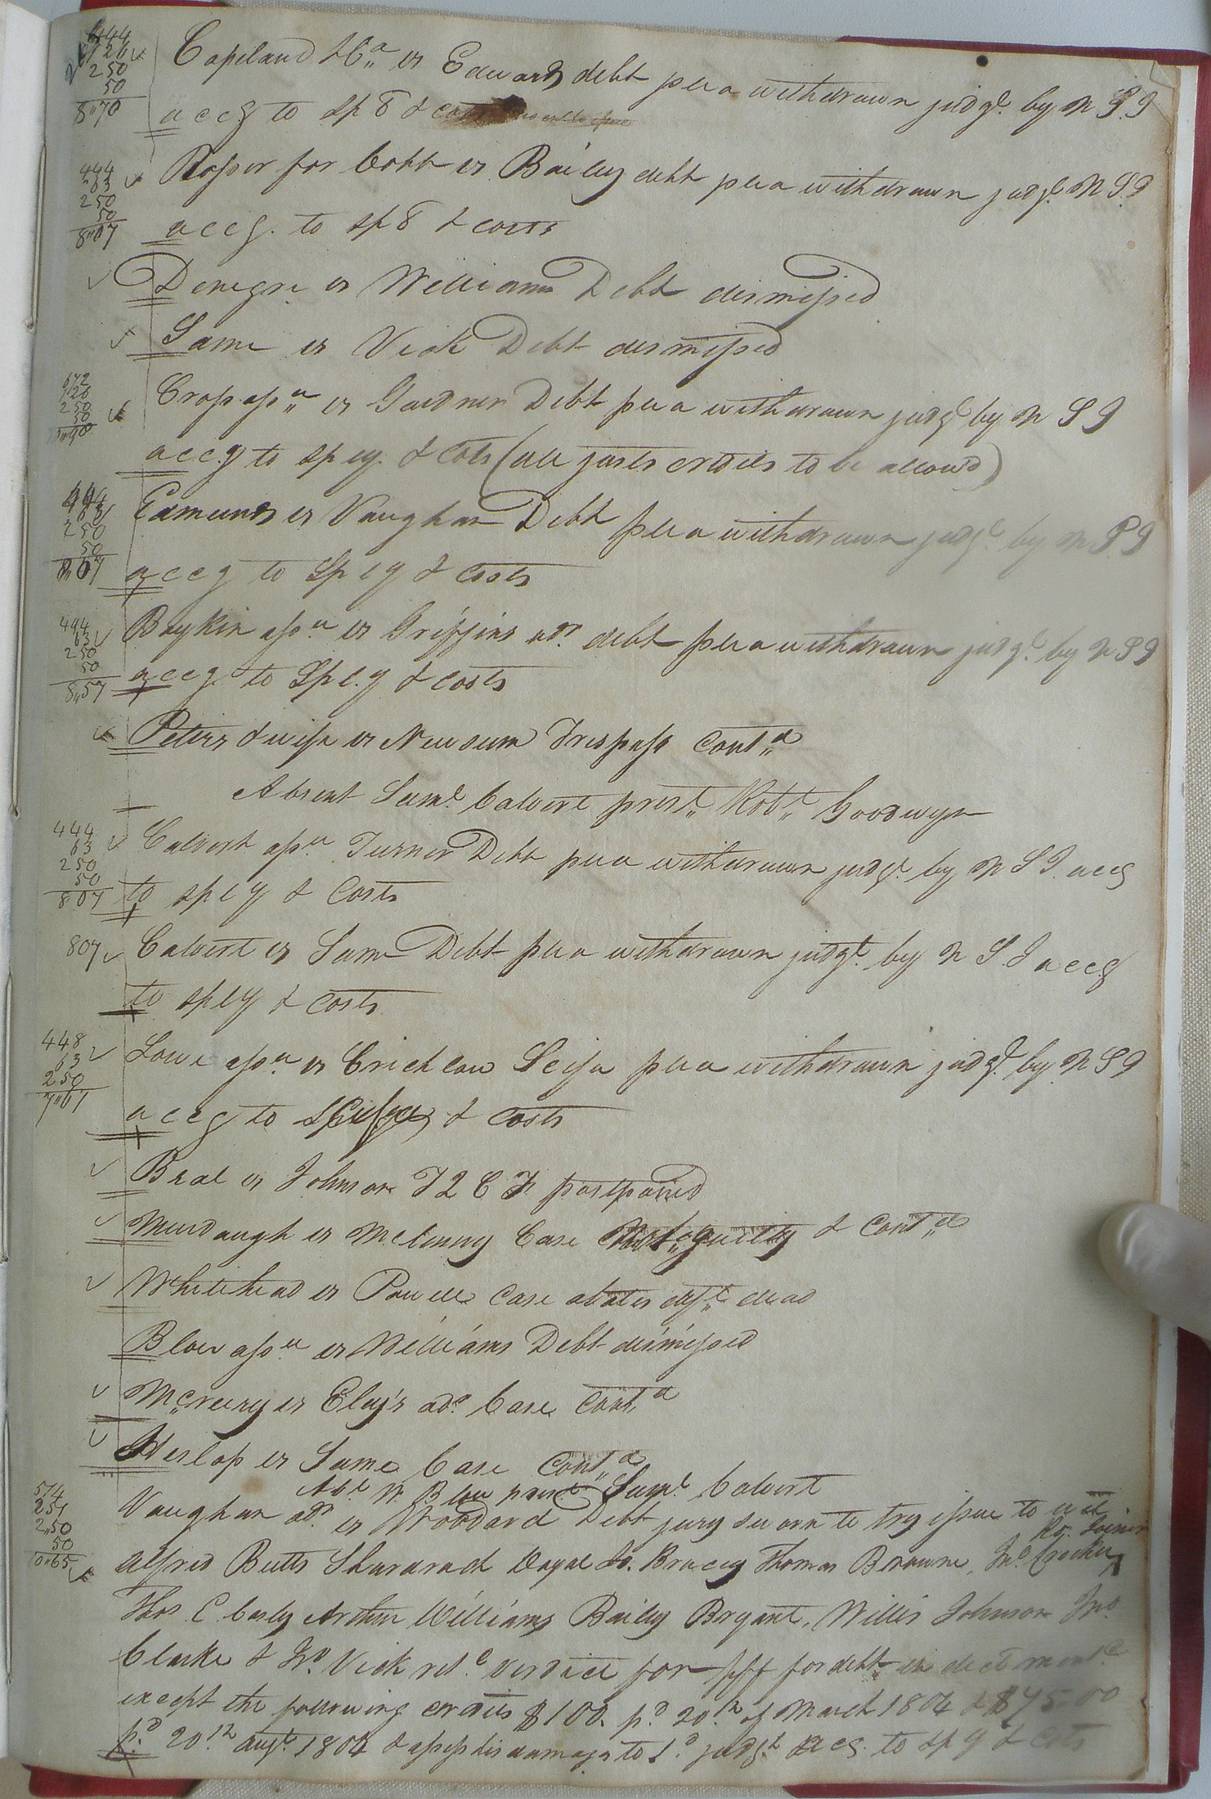 444
126
250
50
8"70
Copeland & Co. vs Edwards debt plea withdrawn judgt. by N S I
accg to sp & costs
444
63
250
50
8"07
Rosser for Cobb vs Bailey debt plea withdrawn judgt. N S I
accg. to sp & costs
Denegre vs Williams Debt dismissed
Same vs Vick Debt dismissed
672
126
250
50
Cross assee vs Gardner Debt plea withdrawn judgt by N S I
accg to sp ey. & Costs (all justs credits to be allowd)
444
63
250
50
8"07
Edmunds vs Vaughan Debt plea withdrawn judgt. by N S I
accg to Sp ey & Costs
494
63
250
50
8"57
Boykin assee vs Griffins adr. debt plea withdrawn judgt. by N S I
accg. to Sp e.y & Costs
Peters & wife vs Newsum Trespass Contd
Absent Saml. Calvert prest. Robt. Goodwyn
444
63
250
50
8"07
Calvert assee Turner Debt plea withdrawn judgt. by N S I. accg
to sp ey & Costs
807
Calvert vs Same Debt plea withdrawn judgt. by N S I accg
to sp ey & Costs
448
63
250
7"61
Lowe assee vs Cricklow plea withdrawn judgt. by N S I
accg to & Costs
Beal vs Johnson postponed
Murdaugh vs McLenny Case Not guilty & Contd
Whitehead vs Powell Case abates deft. dead
Blow assee vs Williams Debt dismissed
McCreery vs Eley's ado. Case Contd
Heslop vs Same Case Contd
Abt. W. Blow prest Saml. Calvert
574
251
2.50
50
10"65
Vaughan adr. vs Woodard Debt jury sworn to try issue to wit
Alfred Butts Shararack Bracey Thomas Browne, Jno. Crocker
Jo. Joiner
Thos C Cosby Arthur Williams Bailey Bryant, Willis Johnson Jno.
Clarke & Jno. Vick retd. verdict for plff for debt in dect ment.
except the following credits $100. pd. 20th of March 1804 & $75.00
pd. 20th Augt. 1804 & assess his damages to 1d. judgt. accg. to sp & Costs